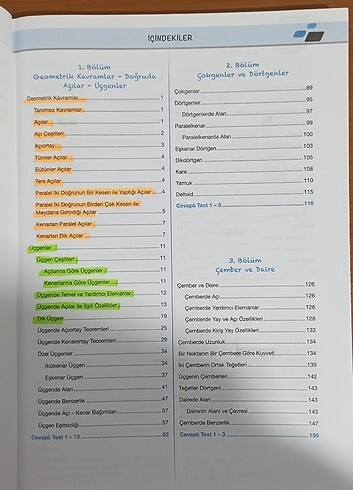 İÇİNDEKİLER
1. Bölüm
Geometrik Kavramlar – Doğruda
Açılar – Üçgenler
Geometrik Kavramlar 1
Tanımsız Kavramlar 1
Açılar 1
Açı Çeşitleri 2
Açıortay 2
Tümler Açılar 2
Bütünler Açılar 2
Ters Açılar 4
Paralel İki Doğrunun Bir Kesen ile Yaptığı Açılar 4
Paralel İki Doğrunun Birden Çok Kesen ile
Meydana Getirdiği Açılar 5
Kenarları Paralel Açılar 7
Kenarları Dik Açılar 7
Üçgenler 11
Üçgen Çeşitleri 11
Açılarına Göre Üçgenler 11
Kenarlarına Göre Üçgenler 11
Üçgende Temel ve Yardımcı Elemanlar 12
Üçgende Açılar ile İlgili Özellikler 13
Dik Üçgen 19
Üçgende Açıortay Teoremleri 25
Üçgende Kenarortay Teoremleri 29
Özel Üçgenler 34
İkizkenar Üçgen 34
Eşkenar Üçgen 37
Üçgende Alan 41
Üçgende Benzerlik 47
Üçgende Açı – Kenar Bağıntıları 57
Üçgen Eşitsizliği 57
Cevaplı Test 1 – 13 63
2. Bölüm
Çokgenler ve Dörtgenler
Çokgenler 89
Dörtgenler 95
Dörtgenlerde Alan 97
Paralelkenar 99
Paralelkenarda Alan 100
Eşkenar Dörtgen 103
Dikdörtgen 105
Kare 108
Yamuk 110
Deltoid 115
Cevaplı Test 1 – 5 116
3. Bölüm
Çember ve Daire
Çember ve Daire 126
Çemberde Açı 126
Çemberde Yardımcı Elemanlar 126
Çemberde Yay ve Açı Özellikleri 128
Çemberde Kiriş Yay Özellikleri 133
Çemberde Uzunluk 134
Bir Noktanın Bir Çembere Göre Kuvveti 134
İki Çemberin Ortak Teğetleri 139
Üçgenin Çemberleri 142
Teğetler Dörtgeni 143
Dairede Alan 143
Dairenin Alanı ve Çevresi 143
Çemberde Benzerlik 147
Cevaplı Test 1 – 3 150